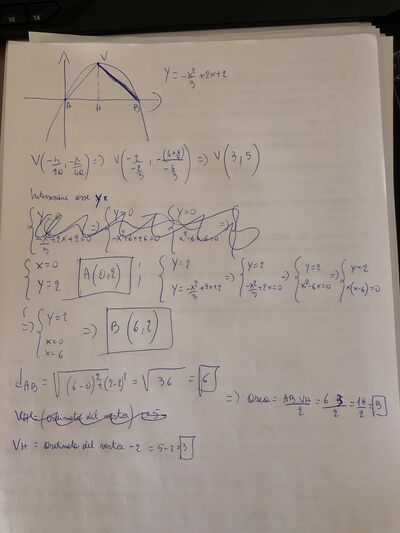 V
y = -x²/3 + 2x + 2
A H B
V(-b/2a, -Δ/4a) => V(-2/(-2/3), -(4+8/3)/(-4/3)) => V(3,5)
Intersezione asse
{x=0 y=2 A(0,2) ; {y=2 y=-x²/3+2x+2 => {y=2 -x²/3+2x=0 => {y=2 x²-6x=0 => {y=2 x(x-6)=0
=> {y=2 x=0 x=6 => B(6,2)
d_AB = √((6-0)²+(2-2)²) = √36 = 6
=> Area = AB·VH/2 = 6·3/2 = 18/2 = 9
VH = ordinata del vertice -2 = 5-2 = 3